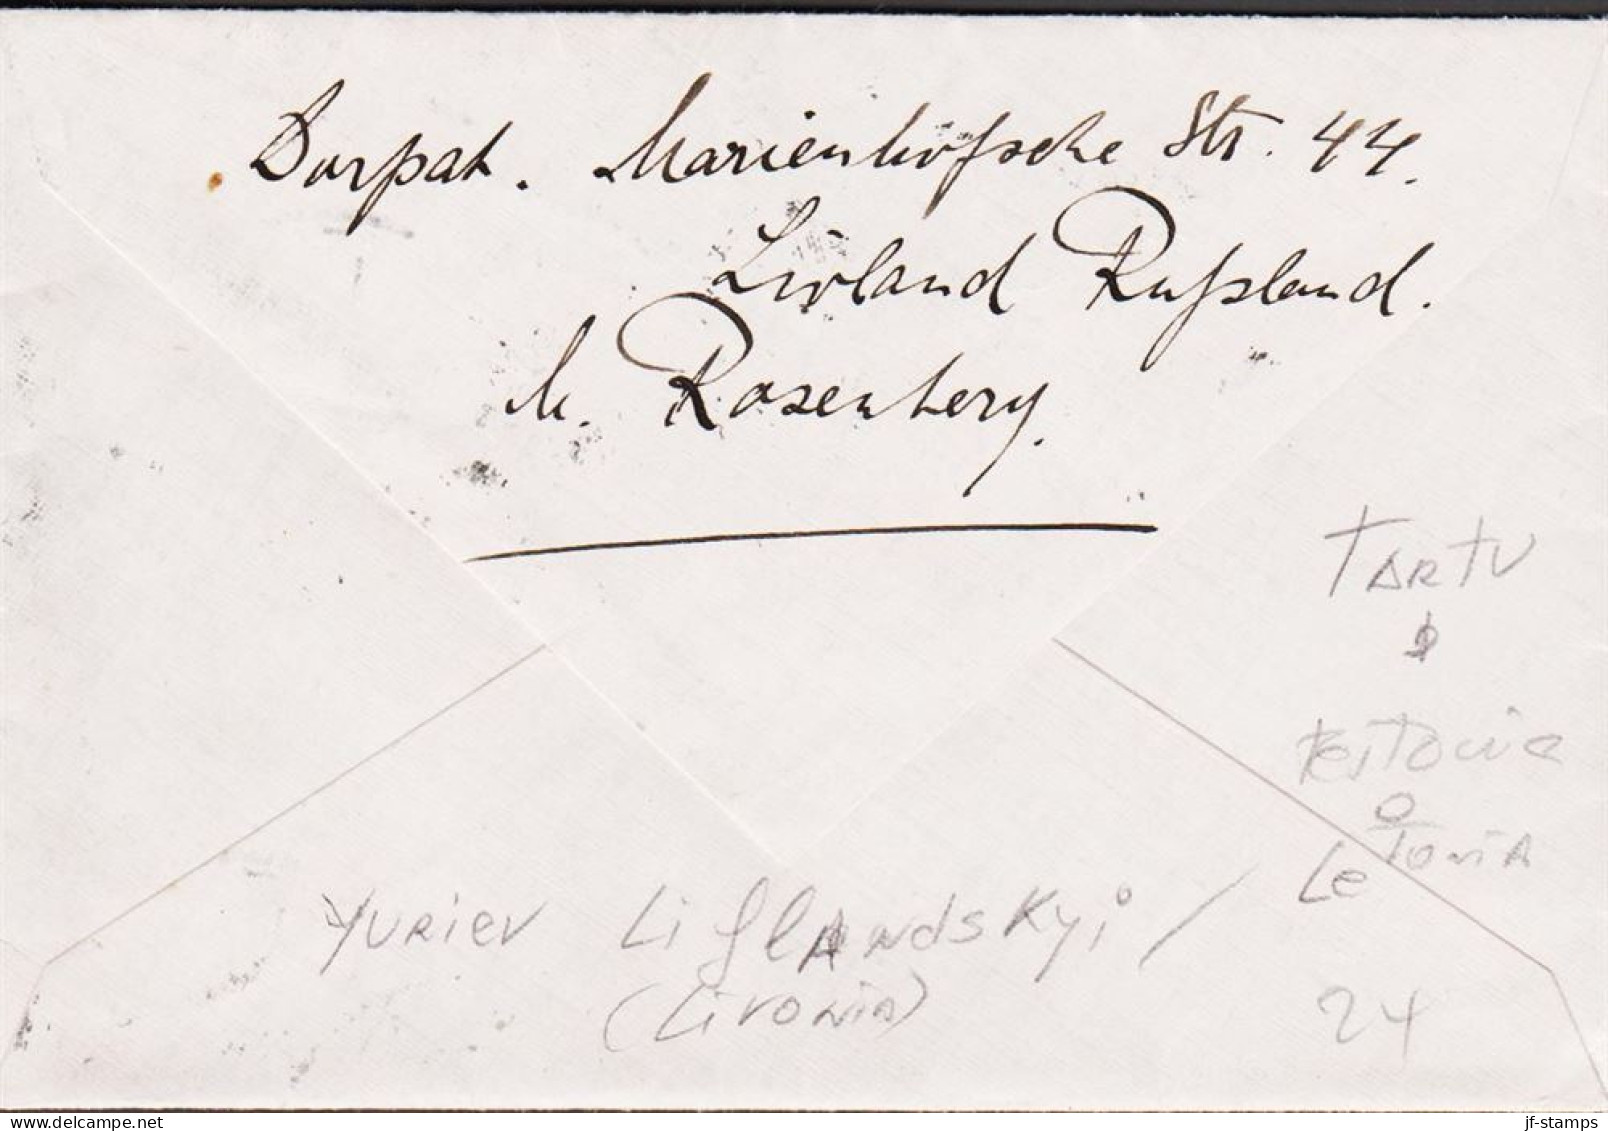 Dorpat. Marienhofsche Str. 44.
Livland Rußland.
M. Rosenberg.
TARTU
Estonia
o
Letonia
Yuriev Liflandskyi /
(Livonia)
24
delcampe.net
jf-stamps